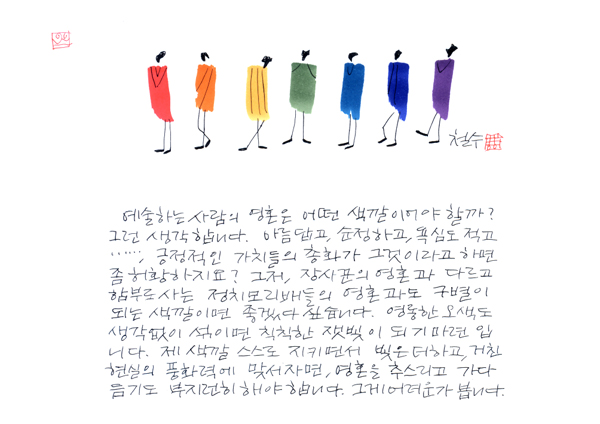 철수
예술하는 사람의 영혼은 어떤 색깔이어야 할까?
그런 생각 합니다. 아름답고, 순정하고, 욕심도 적고
……, 긍정적인 가치들의 총화가 그것이라고 하면
좀 허황하지요? 그저, 장사꾼의 영혼과 다르고
함부로 사는 정치모리배들의 영혼과도 구별이
되는 색깔이면 좋겠다 싶습니다. 영롱한 오색도
생각없이 섞이면 칙칙한 잿빛이 되기 마련 입
니다. 제 색깔 스스로 지키면서 빛은 더하고, 거친
현실의 풍화력에 맞서자면, 영혼을 추스리고 가다
듬기도 부지런히 해야 합니다. 그게 어려운가 봅니다.